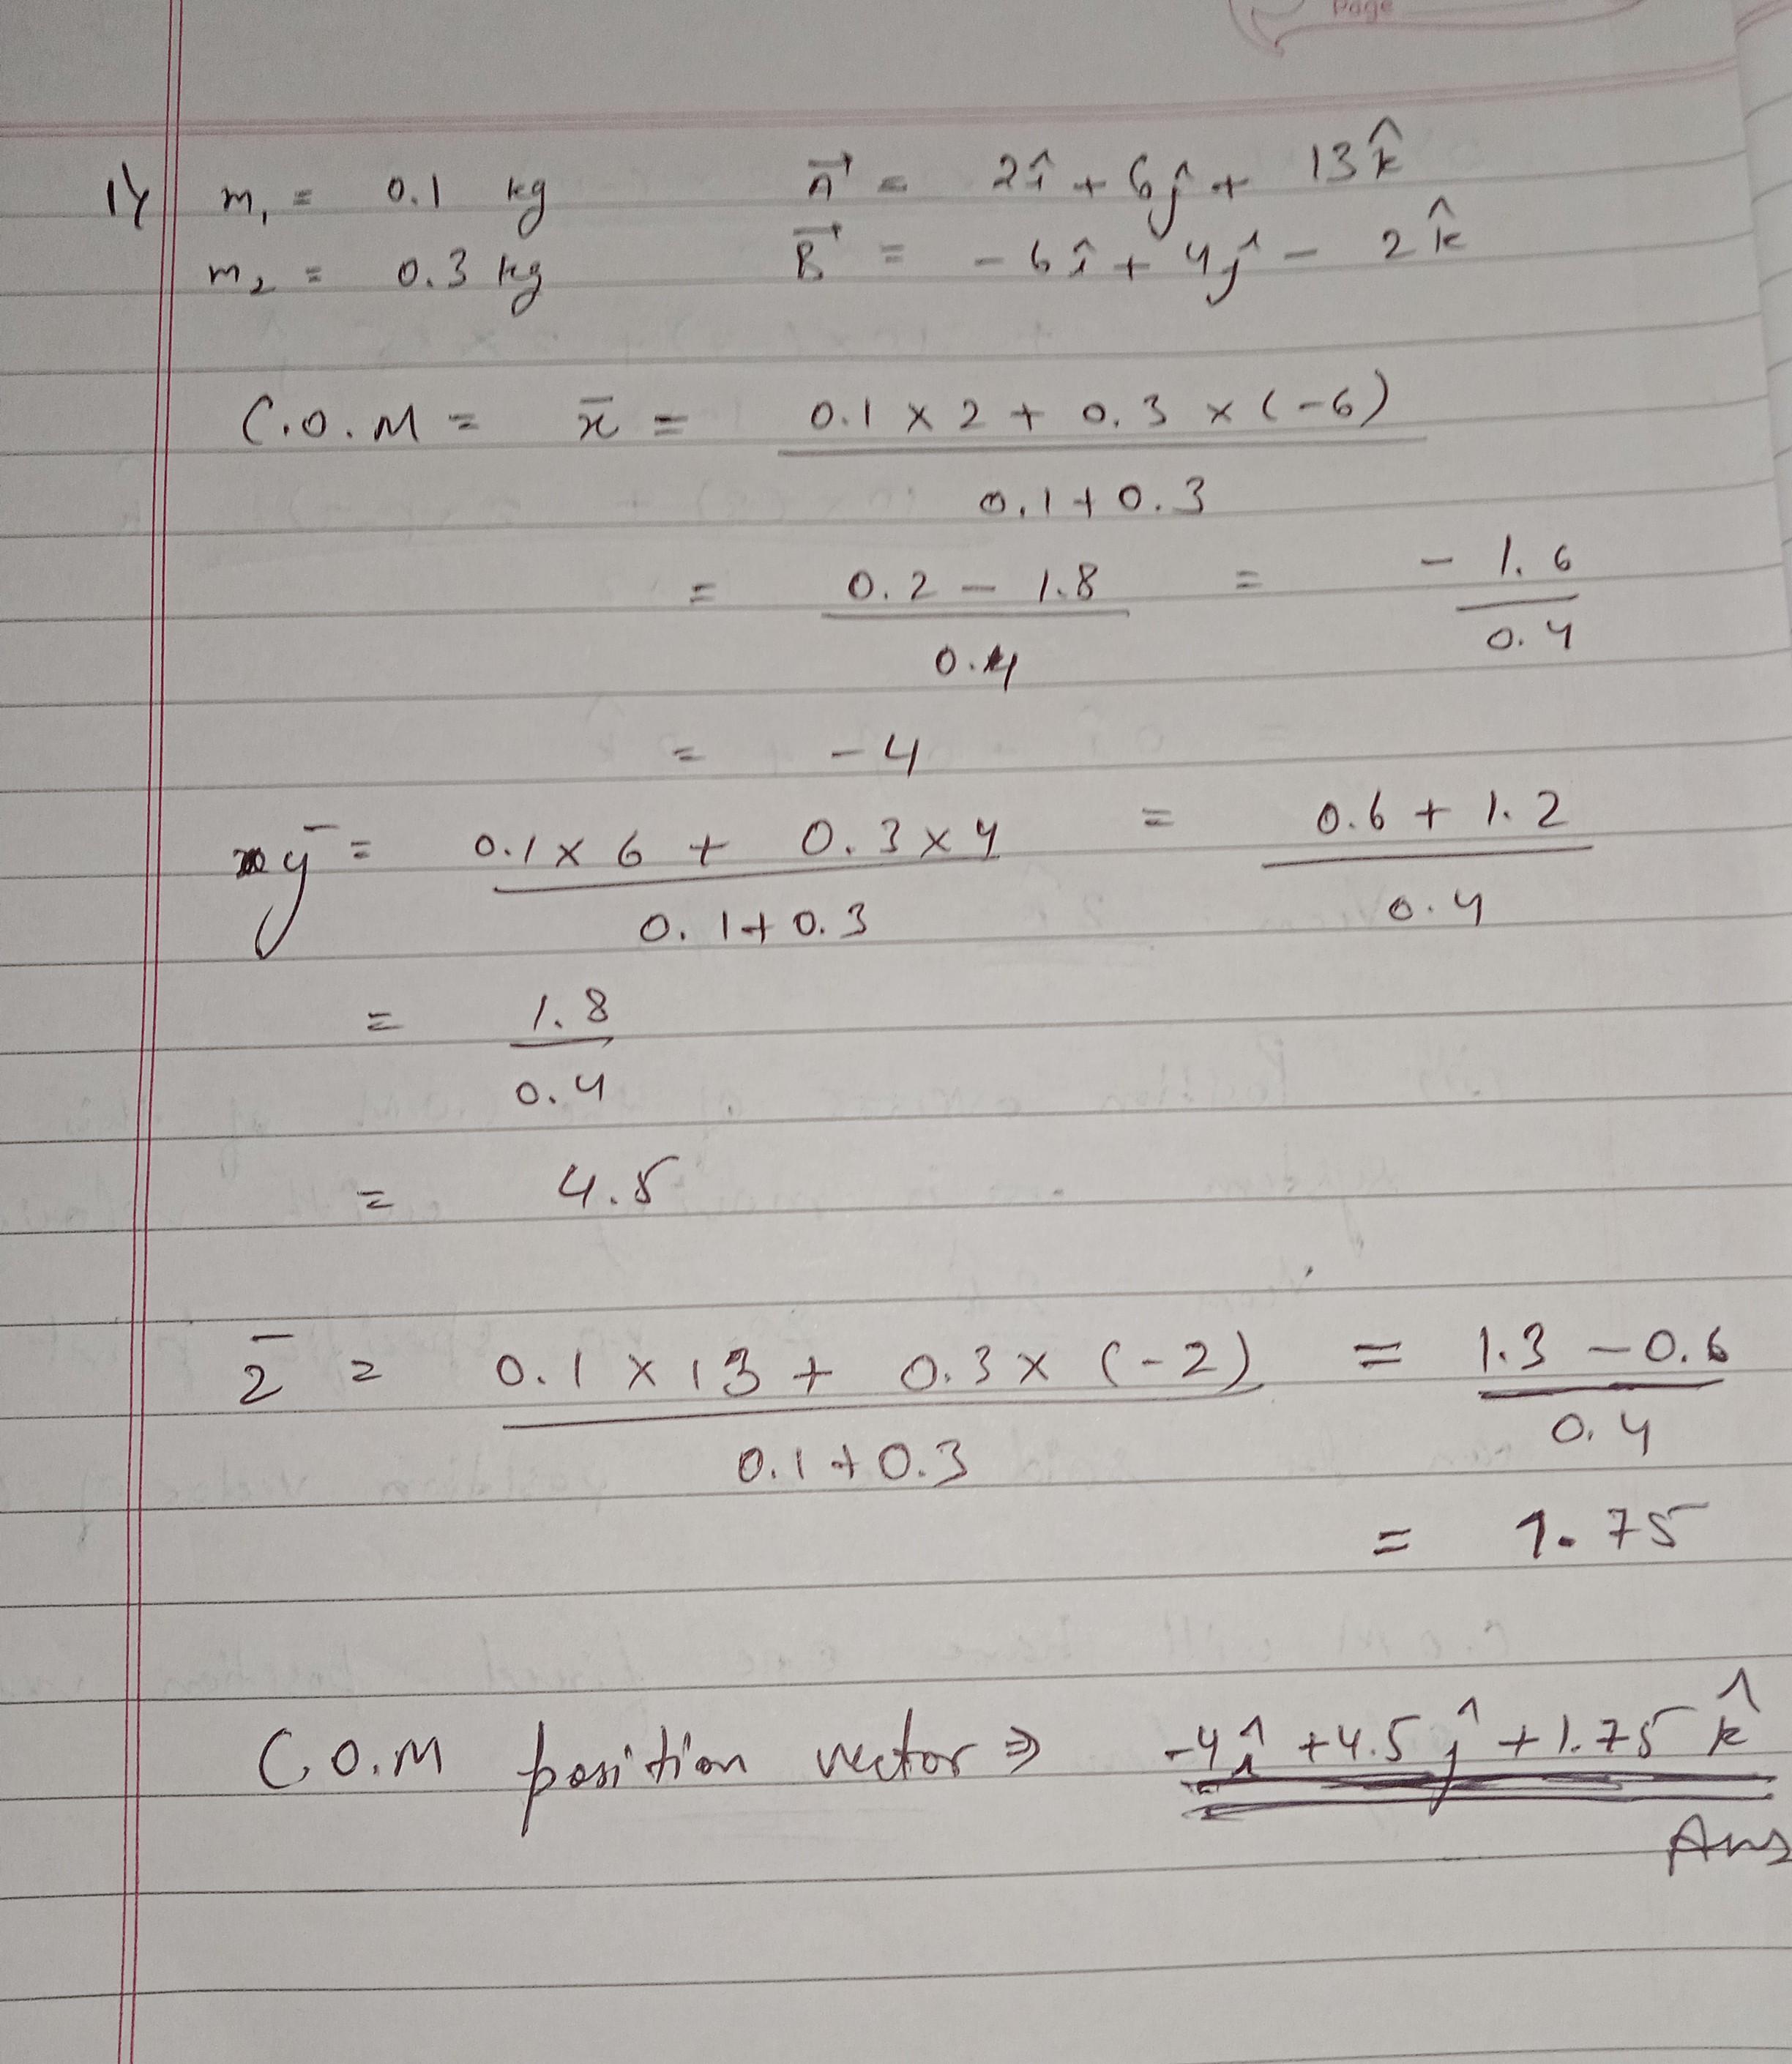 Page
1) m₁ = 0.1 kg A⃗ = 2î + 6ĵ + 13k̂
m₂ = 0.3 kg B⃗ = - 6î + 4ĵ - 2k̂
C.O.M = x̄ = 0.1 × 2 + 0.3 × (-6)
0.1 + 0.3
= 0.2 - 1.8 = - 1.6
0.4 0.4
= - 4
ȳ = 0.1 × 6 + 0.3 × 4 = 0.6 + 1.2
0.1 + 0.3 0.4
= 1.8
0.4
= 4.5
z̄ = 0.1 × 13 + 0.3 × (-2) = 1.3 - 0.6
0.1 + 0.3 0.4
= 1.75
C.O.M position vector ⇒ -4î + 4.5ĵ + 1.75k̂
Ans